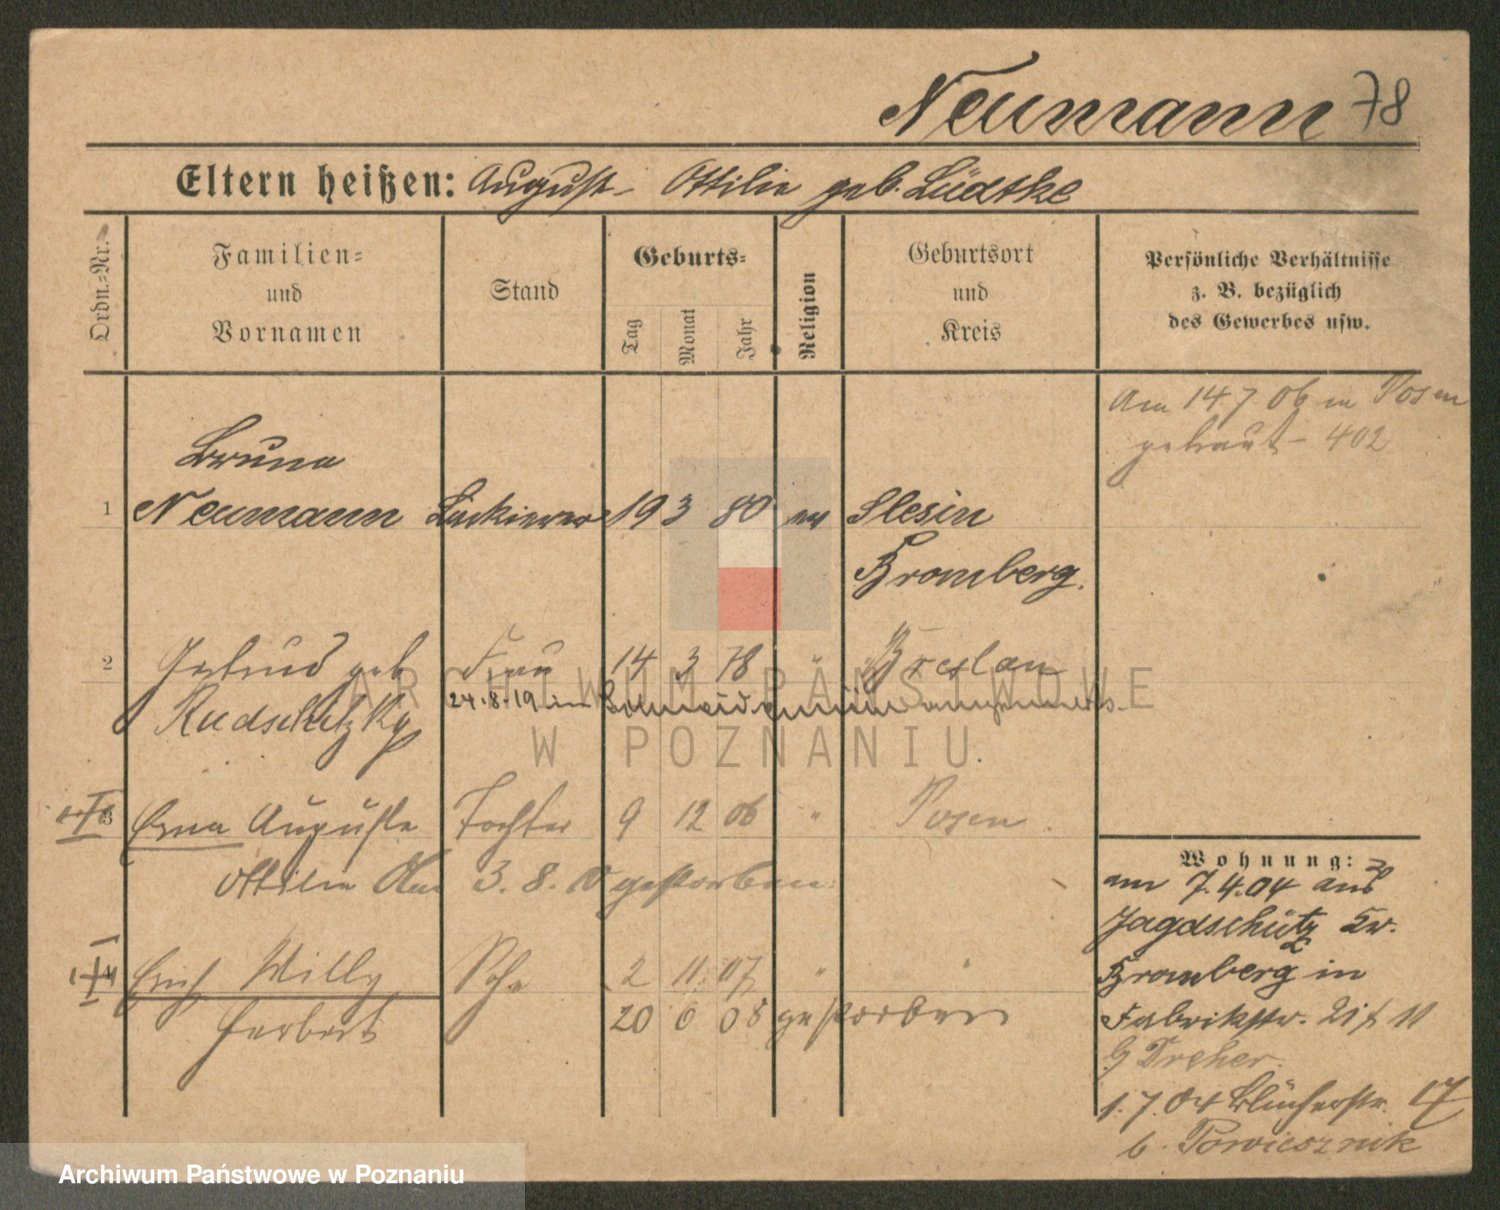 Neumann 78
Eltern heißen: August - Ottilie geb. Lüdtke
Ordn.-Nr.
Familien-
und
Vornamen
Stand
Geburts-
Tag
Monat
Jahr
Religion
Geburtsort
und
Kreis
Persönliche Verhältnisse
z. B. bezüglich
des Gewerbes usw.
Am 14.7 06 in Posen
getraut - 402
Bruno
1 Neumann Lackierer 19 3 80 ev Slesin
Bromberg.
2 Gertrud geb Frau 14 3 78 " Breslau
Rudschitzky
24.8.19 in Schneidemühl
3 Erna Auguste Tochter 9 12 06 " Posen
Ottilie 3.8. gestorben
4 Erich Willy Sohn 2 11. 07 " "
Herbert 20 6 08 gestorben
Wohnung:
am 7.4.04 aus
Jagdschütz Kr.
Bromberg in
Fabrikstr.
b/ Dreher.
1.7.04 Blücherstr. 17
b. Powiesznik
ARCHIWUM PAŃSTWOWE
W POZNANIU
Archiwum Państwowe w Poznaniu